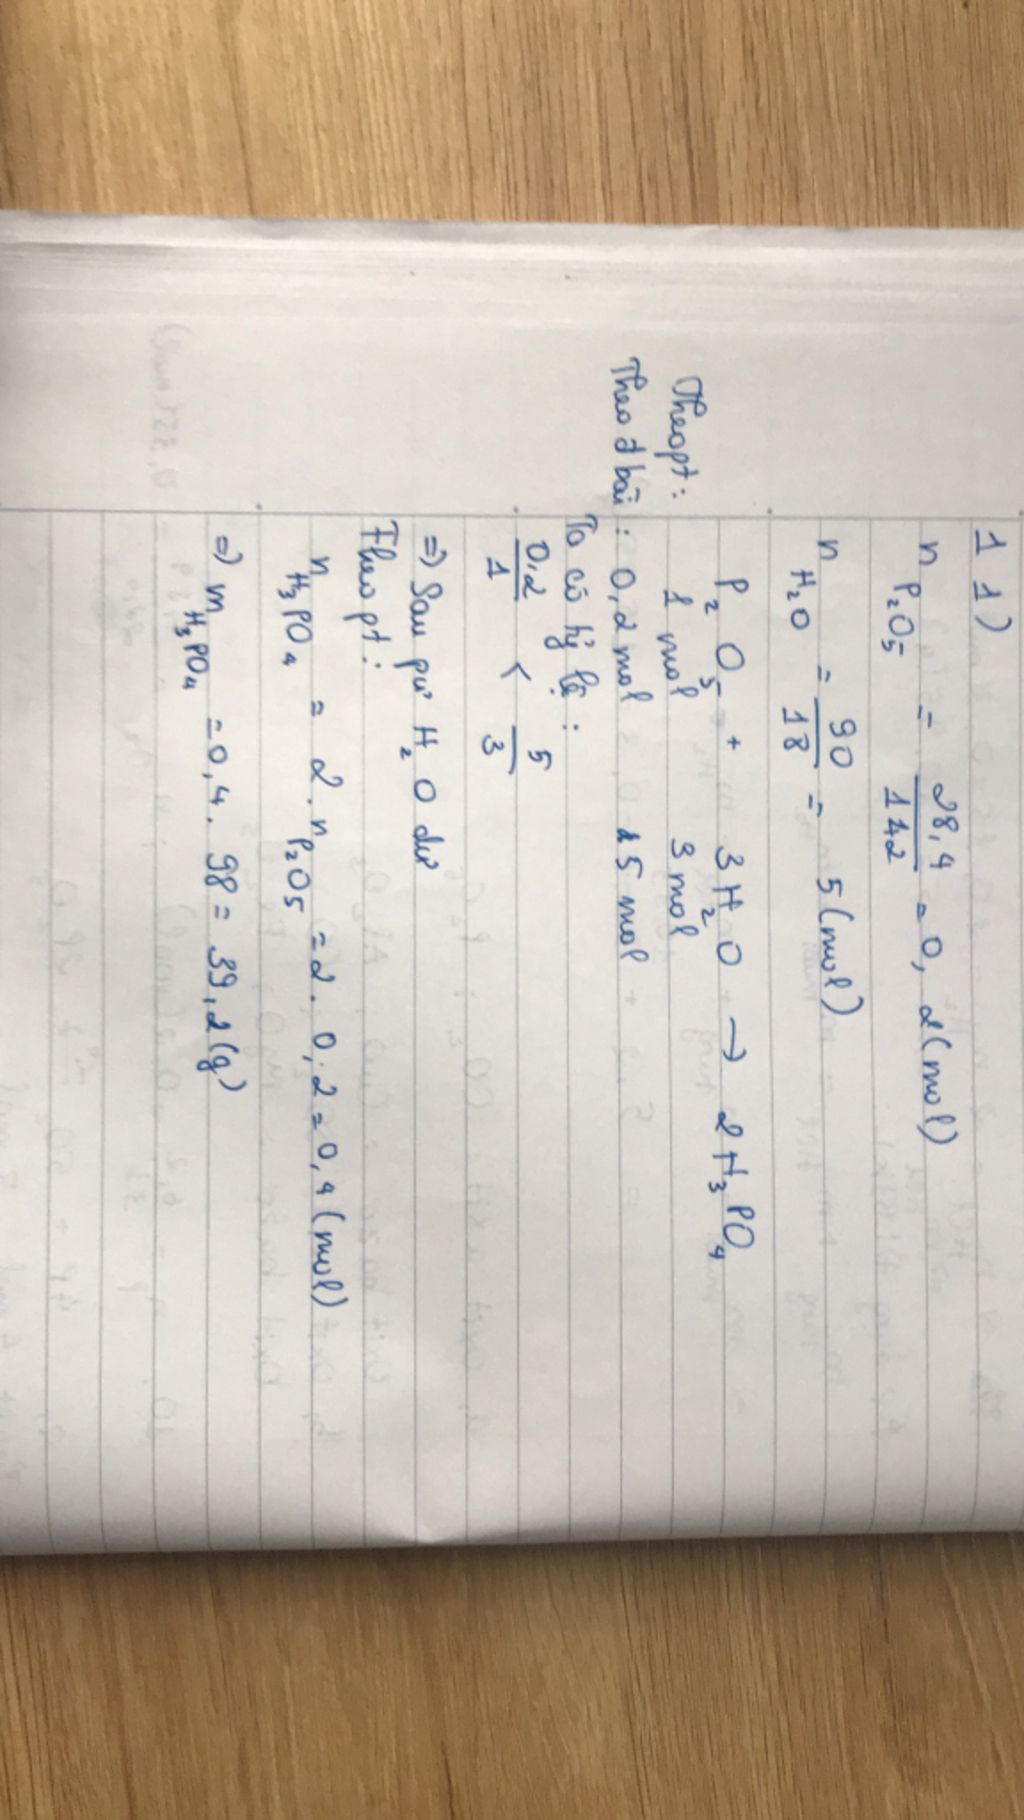 11)
n P₂O₅ = 28,4/142 = 0,2(mol)
n H₂O = 90/18 = 5(mol)
P₂O₅ + 3H₂O → 2H₃PO₄
Theo pt: 1 mol 3 mol
Theo đ bài: 0,2 mol 5 mol
Ta có tỷ lệ:
0,2/1 < 5/3
=> Sau pư H₂O dư
Theo pt:
n H₃PO₄ = 2. n P₂O₅ = 2. 0,2 = 0,4(mol)
=> m H₃PO₄ = 0,4. 98 = 39,2(g)